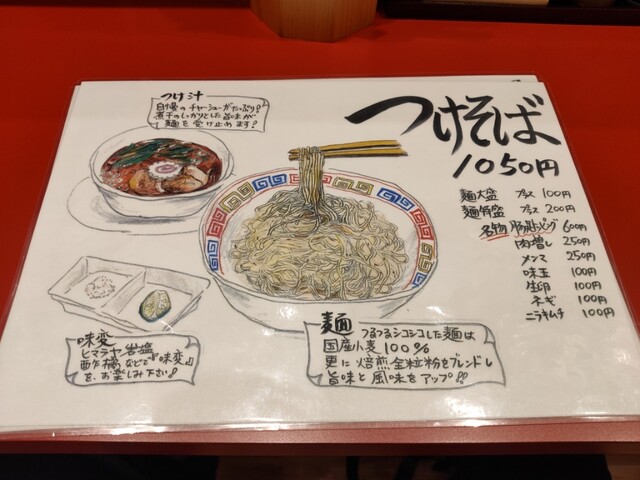 つけ汁
自慢のチャーシューがたっぷり!
煮干のしっかりとした旨味が
麺を受け止めます!
つけそば
1050円
麺大盛 プラス 100円
麺特盛 プラス 200円
名物 豚バラトッピング 600円
肉増し 250円
メンマ 250円
味玉 100円
生卵 100円
ネギ 100円
ニラキムチ 100円
味変
ヒマラヤ岩塩
酢橘などで『味変』
を、お楽しみ下さい!
麺 つるつるシコシコした麺は
国産小麦100%
更に焙煎全粒粉をブレンドし
旨味と風味をアップ!!